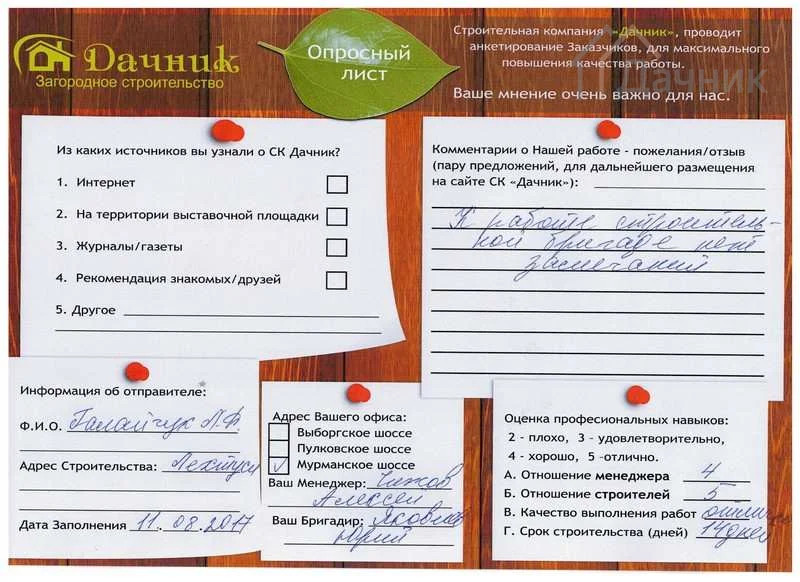 Дачник
Загородное строительство
Опросный
лист
Строительная компания «Дачник», проводит
анкетирование Заказчиков, для максимального
повышения качества работы.
Ваше мнение очень важно для нас.
Дачник
Из каких источников вы узнали о СК Дачник?
1. Интернет
2. На территории выставочной площадки
3. Журналы/газеты
4. Рекомендация знакомых/друзей
5. Другое
Комментарии о Нашей работе - пожелания/отзыв
(пару предложений, для дальнейшего размещения
на сайте СК «Дачник»):
К работе строитель-
ной бригаде нет
замечаний
Информация об отправителе:
Ф.И.О. Галайчук Л.Ф.
Адрес Строительства: Лехтуси
Дата Заполнения 11.08.2017
Адрес Вашего офиса:
Выборгское шоссе
Пулковское шоссе
✓ Мурманское шоссе
Ваш Менеджер: Чижов
Алексей
Ваш Бригадир: Яковлев
Юрий
Оценка профессиональных навыков:
2 - плохо, 3 - удовлетворительно,
4 - хорошо, 5 -отлично.
А. Отношение менеджера 4
Б. Отношение строителей 5
В. Качество выполнения работ
Г. Срок строительства (дней) 14 дней